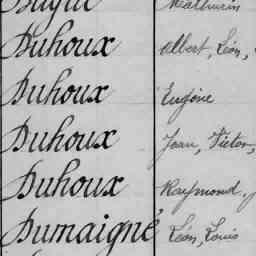 Mathurin
Duhoux Albert, Léon,
Duhoux Eugène
Duhoux Jean, Victor,
Duhoux Raymond,
Dumaigné Léon, Louis